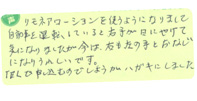 声 リモネアローションを使うようになりまして
自動車を運転していると右手が日にやけて
気になりましたが今は右も左の手とおなじ
になりうれしいです。
申し込むのでしようがハガキにしました